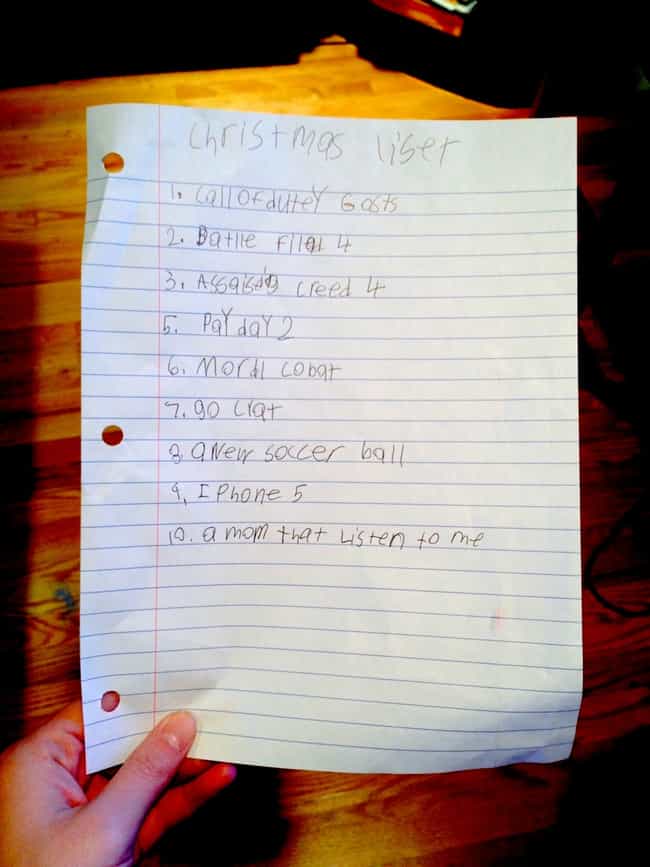 christmas liset
1. Call Of dutey Gosts
2. Batlle filed 4
3. Assaisins creed 4
5. Pay day 2
6. Mordl cobat
7. go crat
8. a New soccer ball
9. I Phone 5
10. a mom that Listen to me